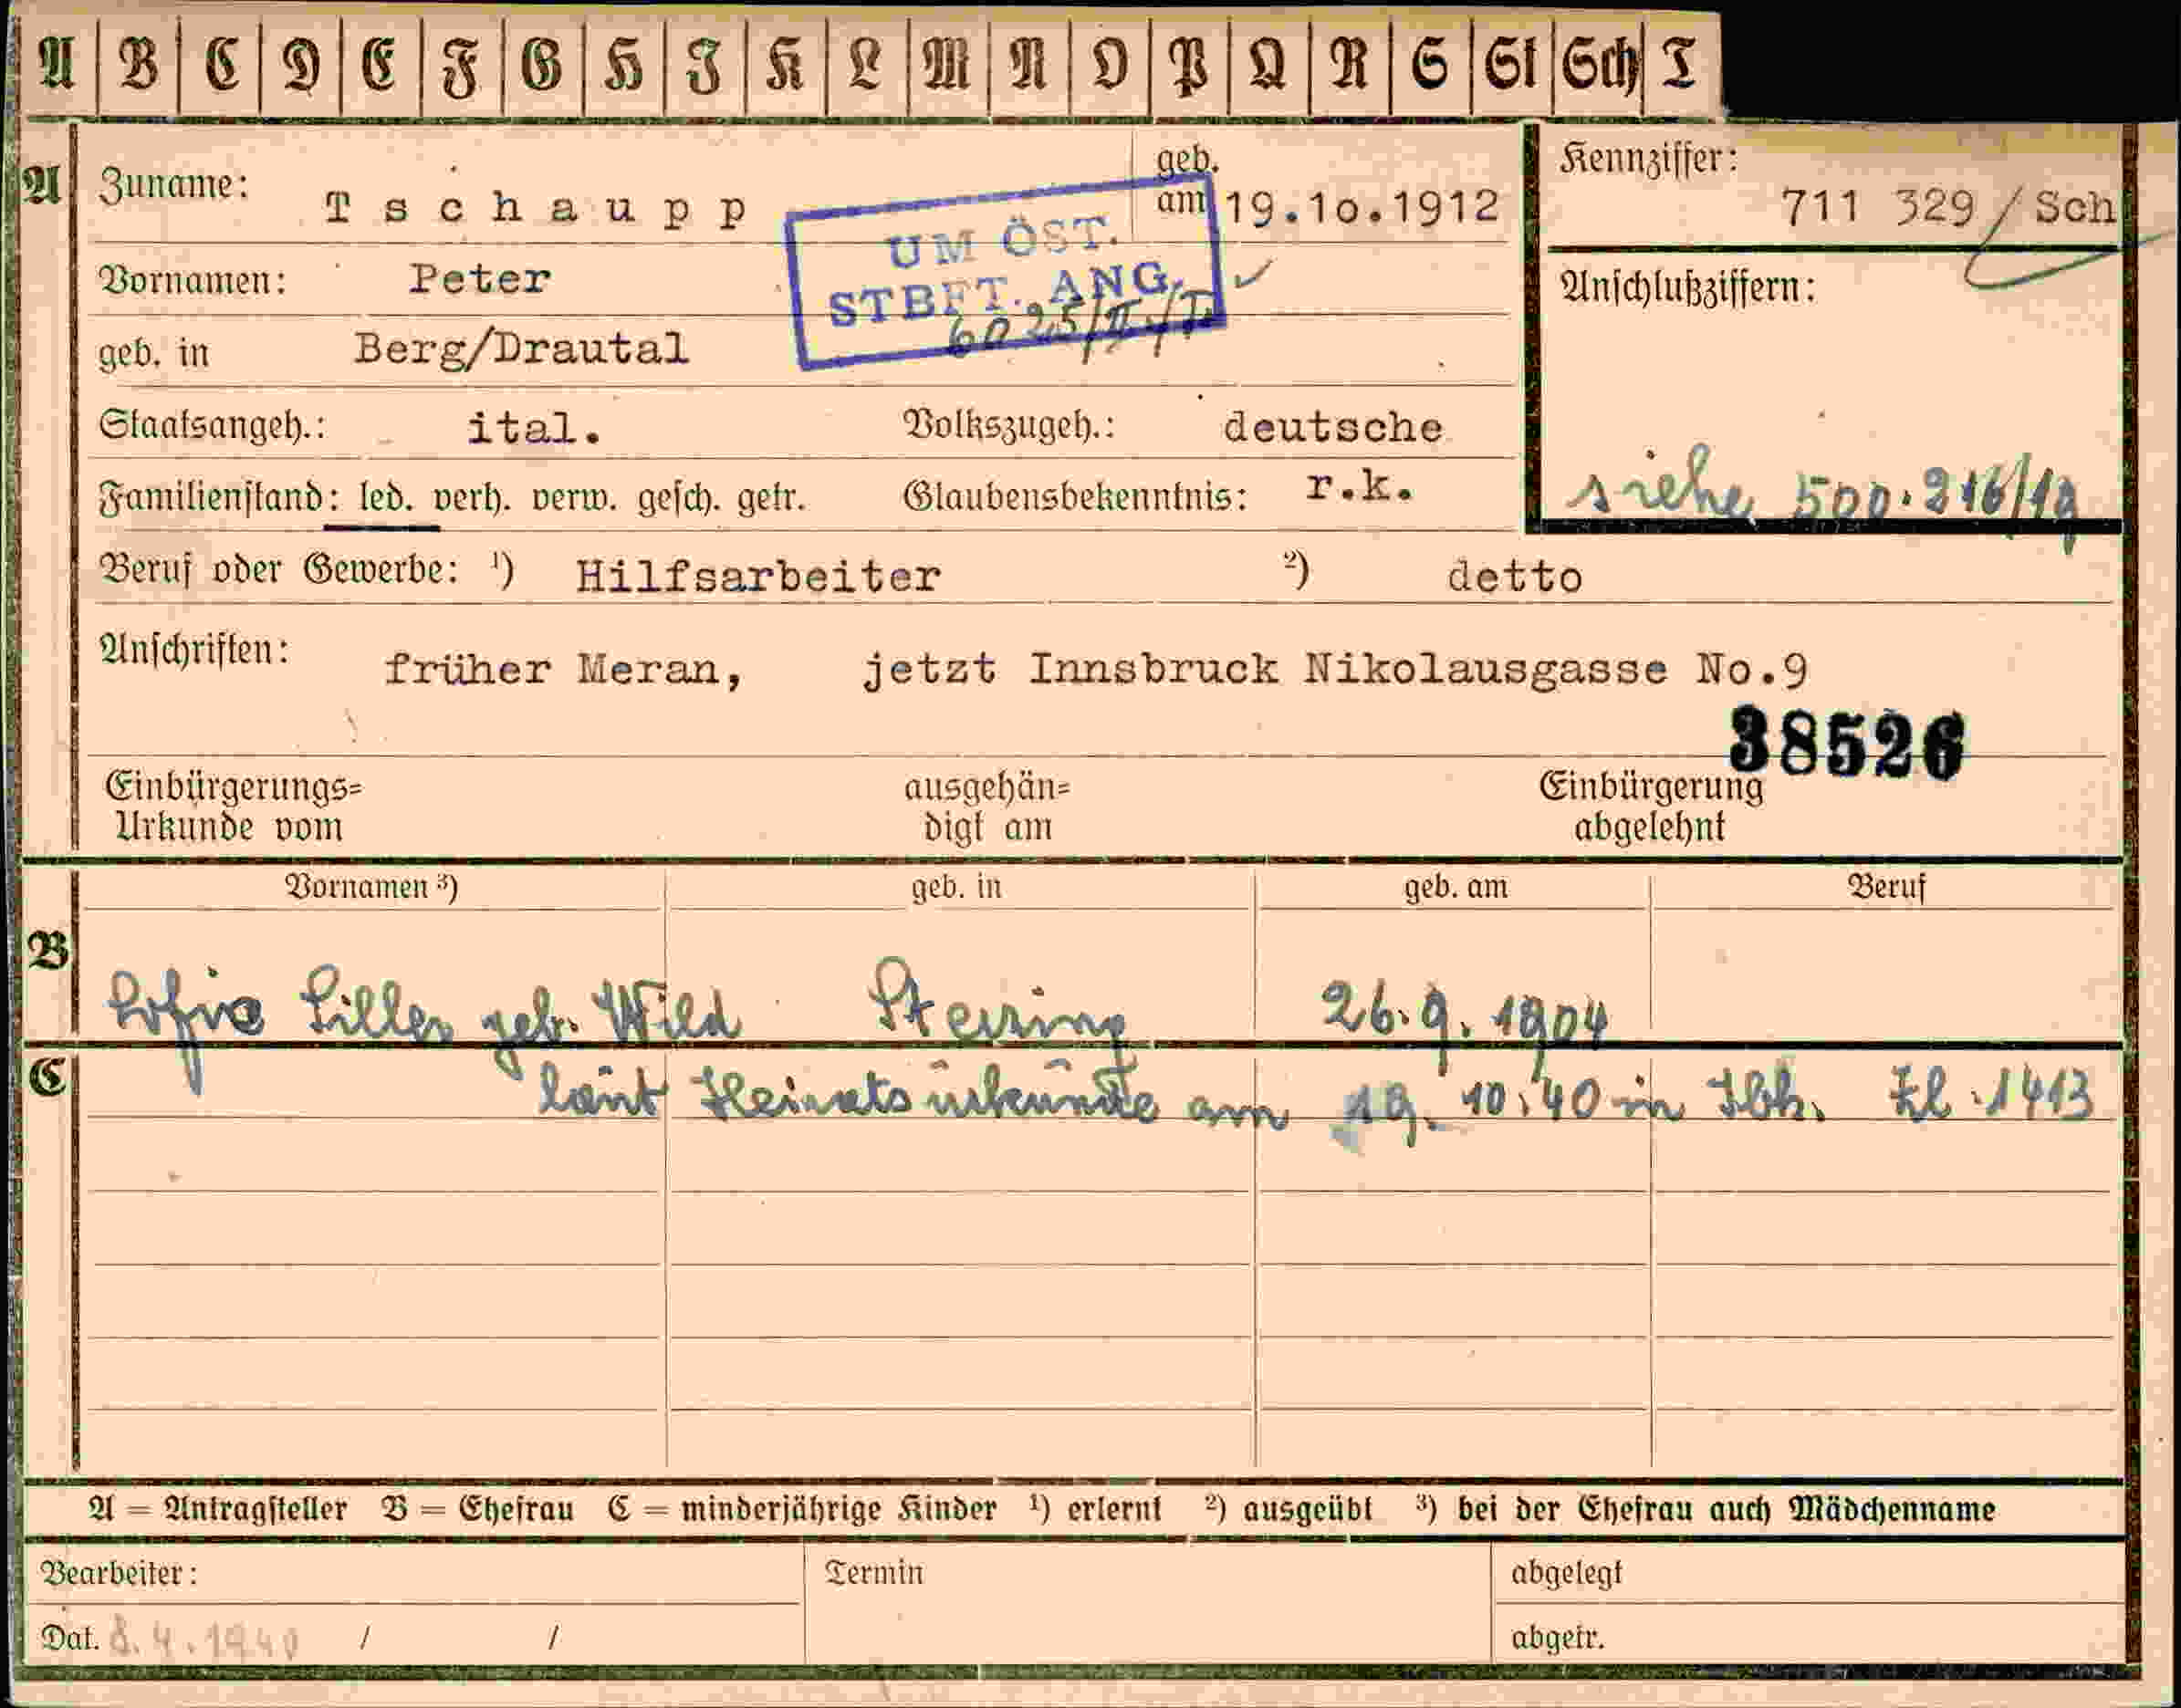 A B C D E F G H J K L M N O P Q R S St Sch T
A Zuname: Tschaupp geb. am 19.10.1912
Kennziffer: 711 329 / Sch
UM ÖST.
STBFT. ANG.
6025/II/T
Vornamen: Peter
Anschlußziffern:
geb. in Berg/Drautal
Staatsangeh.: ital. Volkszugeh.: deutsche
Familienstand: led. verh. verw. gesch. getr. Glaubensbekenntnis: r.k.
siehe 500.216/19
Beruf oder Gewerbe: ¹) Hilfsarbeiter ²) detto
Anschriften: früher Meran, jetzt Innsbruck Nikolausgasse No.9
38526
Einbürgerungs= ausgehän= Einbürgerung
Urkunde vom digt am abgelehnt
Vornamen ³) geb. in geb. am Beruf
B Sofie Siller geb. Wild Sterzing 26.9.1904
C laut Heiratsurkunde am 19.10.40 in Ibk. Zl. 1413
A = Antragsteller B = Ehefrau C = minderjährige Kinder ¹) erlernt ²) ausgeübt ³) bei der Ehefrau auch Mädchenname
Bearbeiter: Termin abgelegt
Dat. 8.4.1940 / / abgetr.